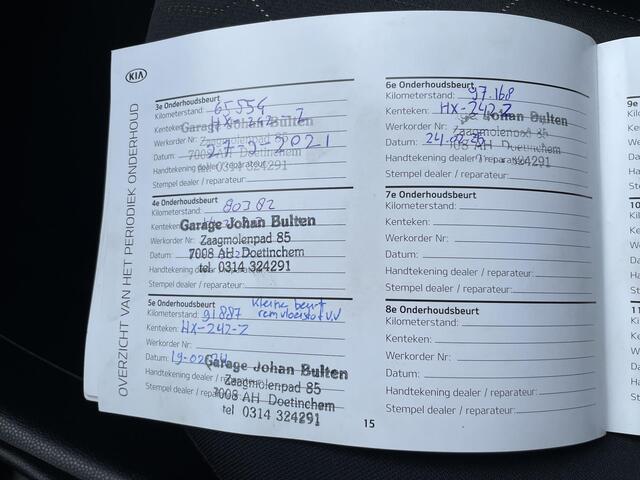 KIA
OVERZICHT VAN HET PERIODIEK ONDERHOUD
3e Onderhoudsbeurt
Kilometerstand: 65554
Kenteken: HX-242-Z
Garage Johan Bulten
Werkorder Nr: Zaagmolenpad 85
Datum: 2021
7008 AH Doetinchem
Handtekening dealer / reparateur:
tel. 0314 324291
Stempel dealer / reparateur:
4e Onderhoudsbeurt
Kilometerstand: 80382
Kenteken:
Garage Johan Bulten
Werkorder Nr: Zaagmolenpad 85
Datum: 7008 AH Doetinchem
Handtekening dealer / reparateur:
tel 0314 324291
Stempel dealer / reparateur:
5e Onderhoudsbeurt Kleine beurt
Kilometerstand: 91887 remvloeistof v.v
Kenteken: HX-242-Z
Werkorder Nr:
Datum: 19-02-24
Garage Johan Bulten
Handtekening dealer / reparateur: Zaagmolenpad 85
Stempel dealer / reparateur: 7008 AH Doetinchem
tel 0314 324291
6e Onderhoudsbeurt
Kilometerstand: 97.168
Kenteken: HX-242-Z
Johan Bulten
Werkorder Nr: Zaagmolenpad 85
Datum: 24-02-25
7008 AH Doetinchem
Handtekening dealer / reparateur: 324291
Stempel dealer / reparateur:
7e Onderhoudsbeurt
Kilometerstand:
Kenteken:
Werkorder Nr:
Datum:
Handtekening dealer / reparateur:
Stempel dealer / reparateur:
8e Onderhoudsbeurt
Kilometerstand:
Kenteken:
Werkorder Nr:
Datum:
Handtekening dealer / reparateur:
Stempel dealer / reparateur:
15
9e
Kilo
Ken
Wer
Dat
Han
Ste
10
Kil
Ke
We
Da
Ha
St
11
Ki
K